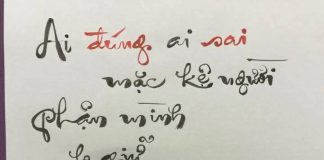 Ai đúng ai sai
mặc kệ người
phận mình